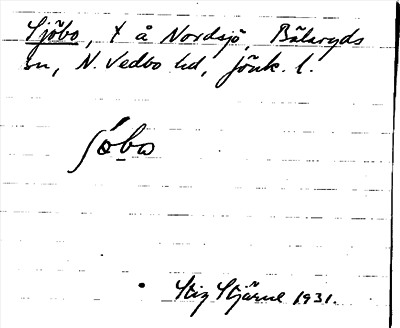 Sjöbo, t å Nordsjö, Bälaryds
sn, N. Vedbo hd, Jönk. l.
ʃöbo
Stig Stjärne 1931.